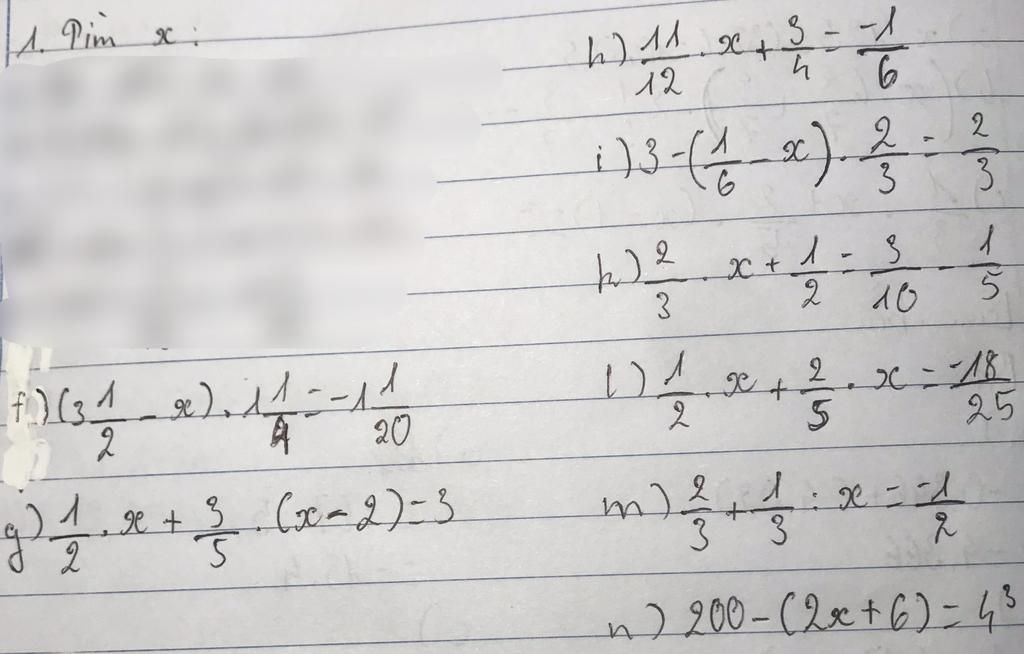 1. Tìm x:
f) (3 1/2 - x) . 1 1/4 = -1 1/20
g) 1/2 . x + 3/5 . (x - 2) = 3
h) 11/12 . x + 3/4 = -1/6
i) 3 - (1/6 - x) . 2/3 = 2/3
k) 2/3 . x + 1/2 = 3/10 - 1/5
l) 1/2 . x + 2/5 . x = -18/25
m) 2/3 + 1/3 : x = -1/2
n) 200 - (2x + 6) = 4³